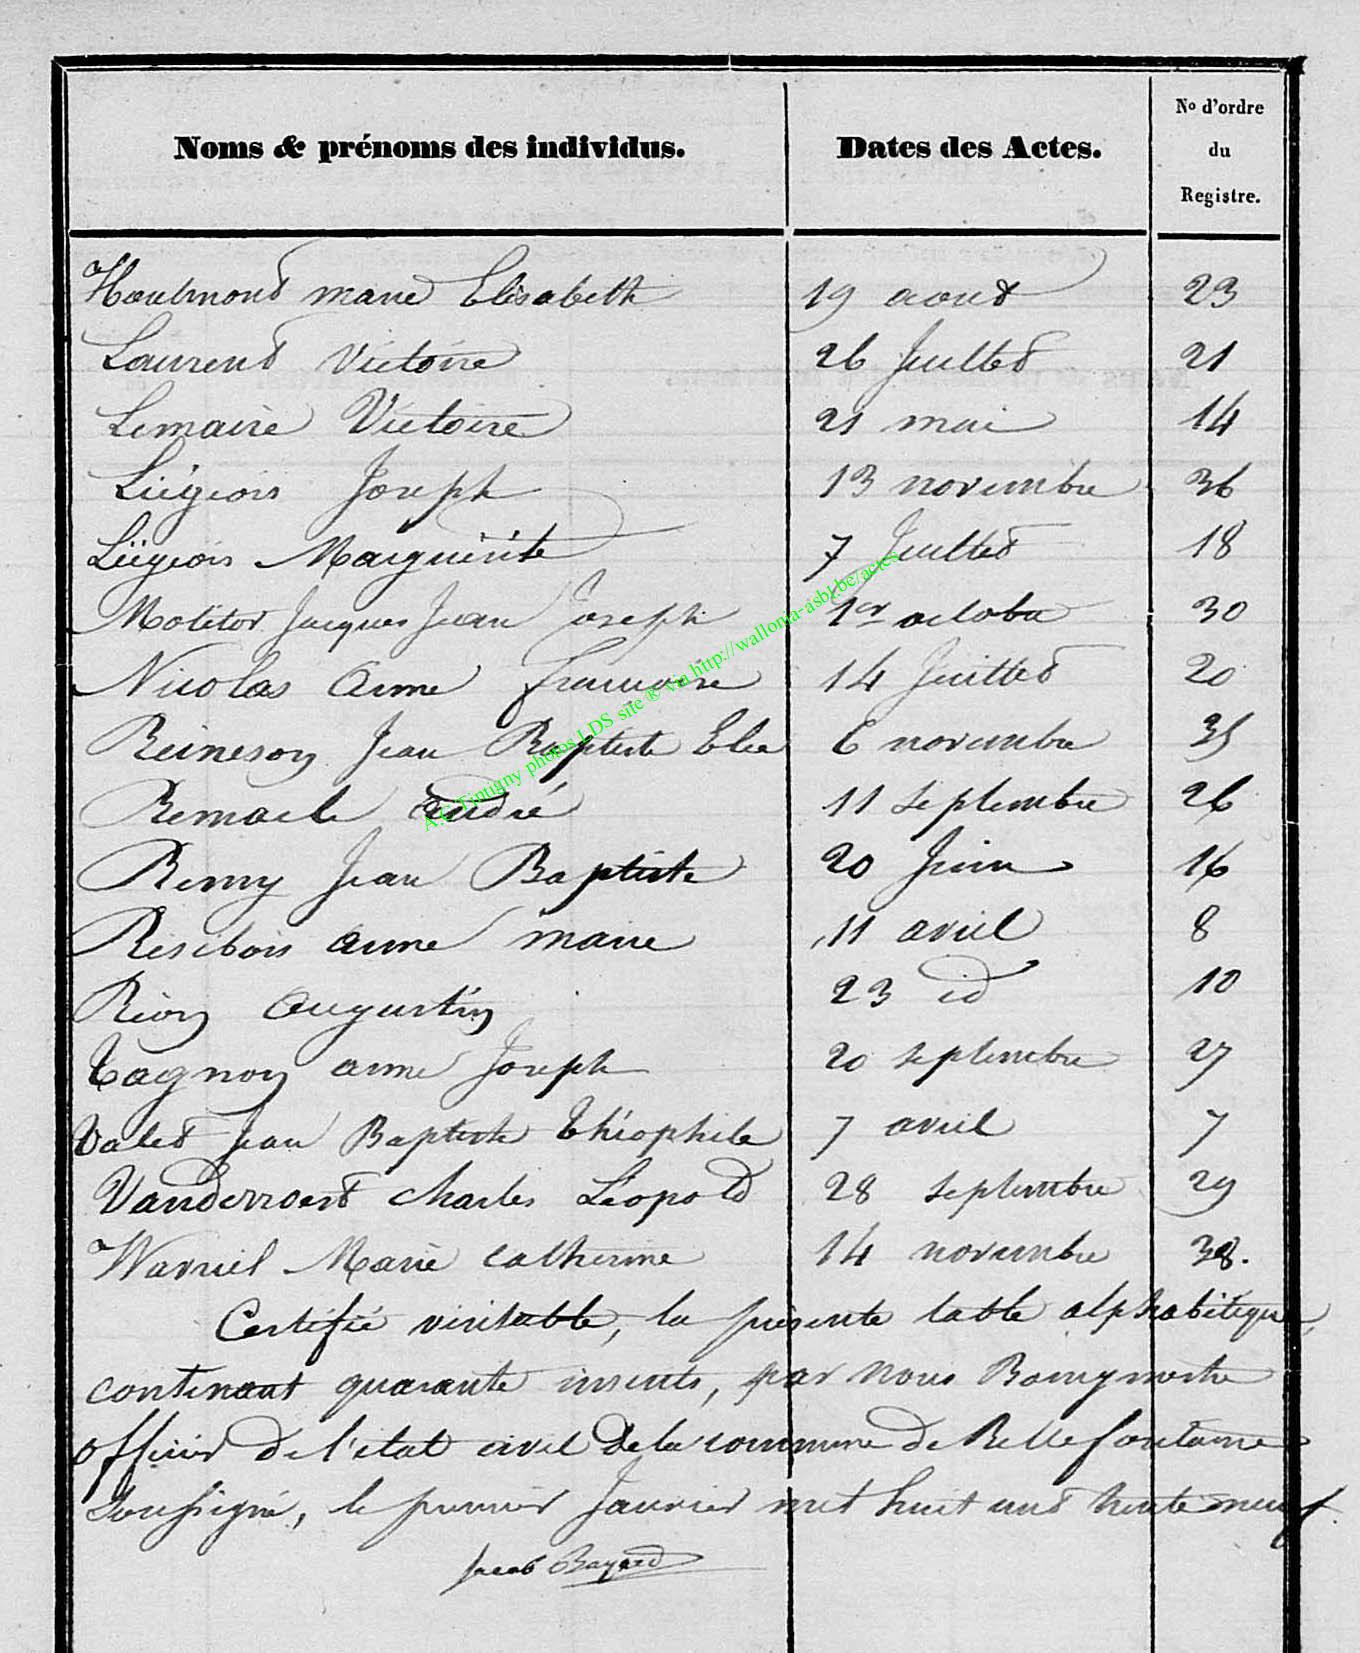 Noms & prénoms des individus. Dates des Actes. No d'ordre du Registre.
Houlmont marie Elisabeth 19 aout 23
Laurent Victoire 26 Juillet 21
Lemaire Victoire 21 mai 14
Liégeois Joseph 13 novembre 36
Liégeois Marguerite 7 Juillet 18
Molitor Jacques Jean Joseph 1er octobre 30
Nicolas anne françoise 14 Juillet 20
Reineson Jean Baptiste Elie 6 novembre 35
Remacle andré 11 septembre 26
Remy Jean Baptiste 20 Juin 16
Resibois anne marie 11 avril 8
Rion augustin 23 id 10
Tagnon anne Joseph 20 septembre 27
Valet Jean Baptiste Théophile 7 avril 7
charles Léopold 28 septembre 29
Marie catherine 14 novembre 38.
Certifié véritable, la présente table alphabétique,
contenant quarante inscrits, par nous Bourgmestre
officier de l'état civil de la commune de Bellefontaine
soussigné, le premier Janvier mil huit cent trente neuf.
Jacob Bayard
A.C. Tintigny photos LDS site ® via http://wallonia-asbl.be/actes